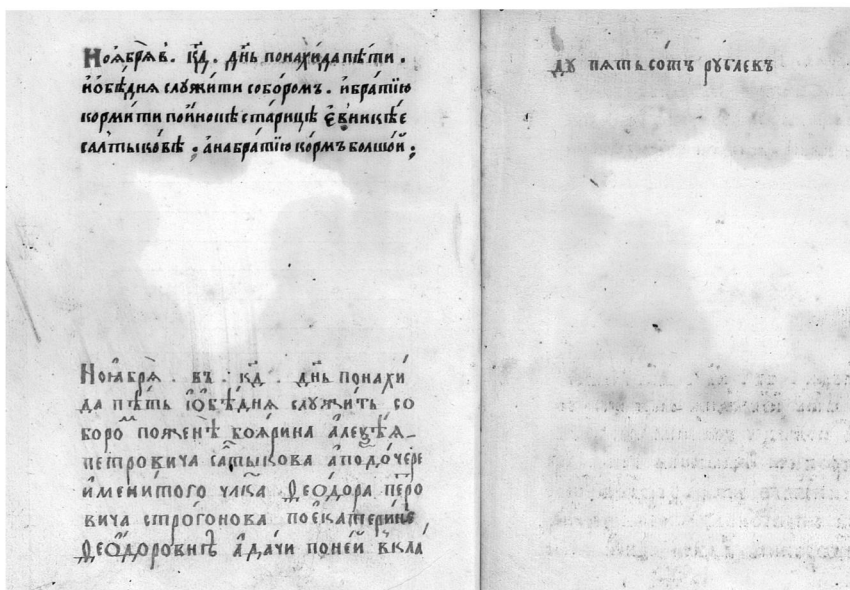 Ноября в . к҃д . днь понахида пѣти .
и ѻбѣдня служити соборомъ . и братїю
кормити по иноше старицѣ Єѵникѣе
салтыковѣ : а на братїю кормъ болшой :
Ноября . въ . к҃д . днь понахи
да пѣть и ѻбѣдня служить со
боромъ по женѣ боярина Алеѯѣя
петровича салтыкова а по дочере
именитого члка Ѳеѻдора петро
вича строгонова по екатерине
Ѳеѻдоровнѣ а дачи по ней вкла
ду пять сотъ рублевъ